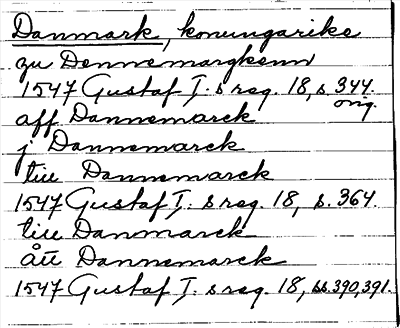 Danmark, konungarike
zu Dennemargkenn
1547 Gustaf I:s reg. 18, s. 344.
orig.
aff Dannemarck
j Dannemarck
till Dannemarck
1547 Gustaf I:s reg. 18, s. 364.
till Danmarck
ått Dannemarck
1547 Gustaf I:s reg. 18, ss. 390, 391.